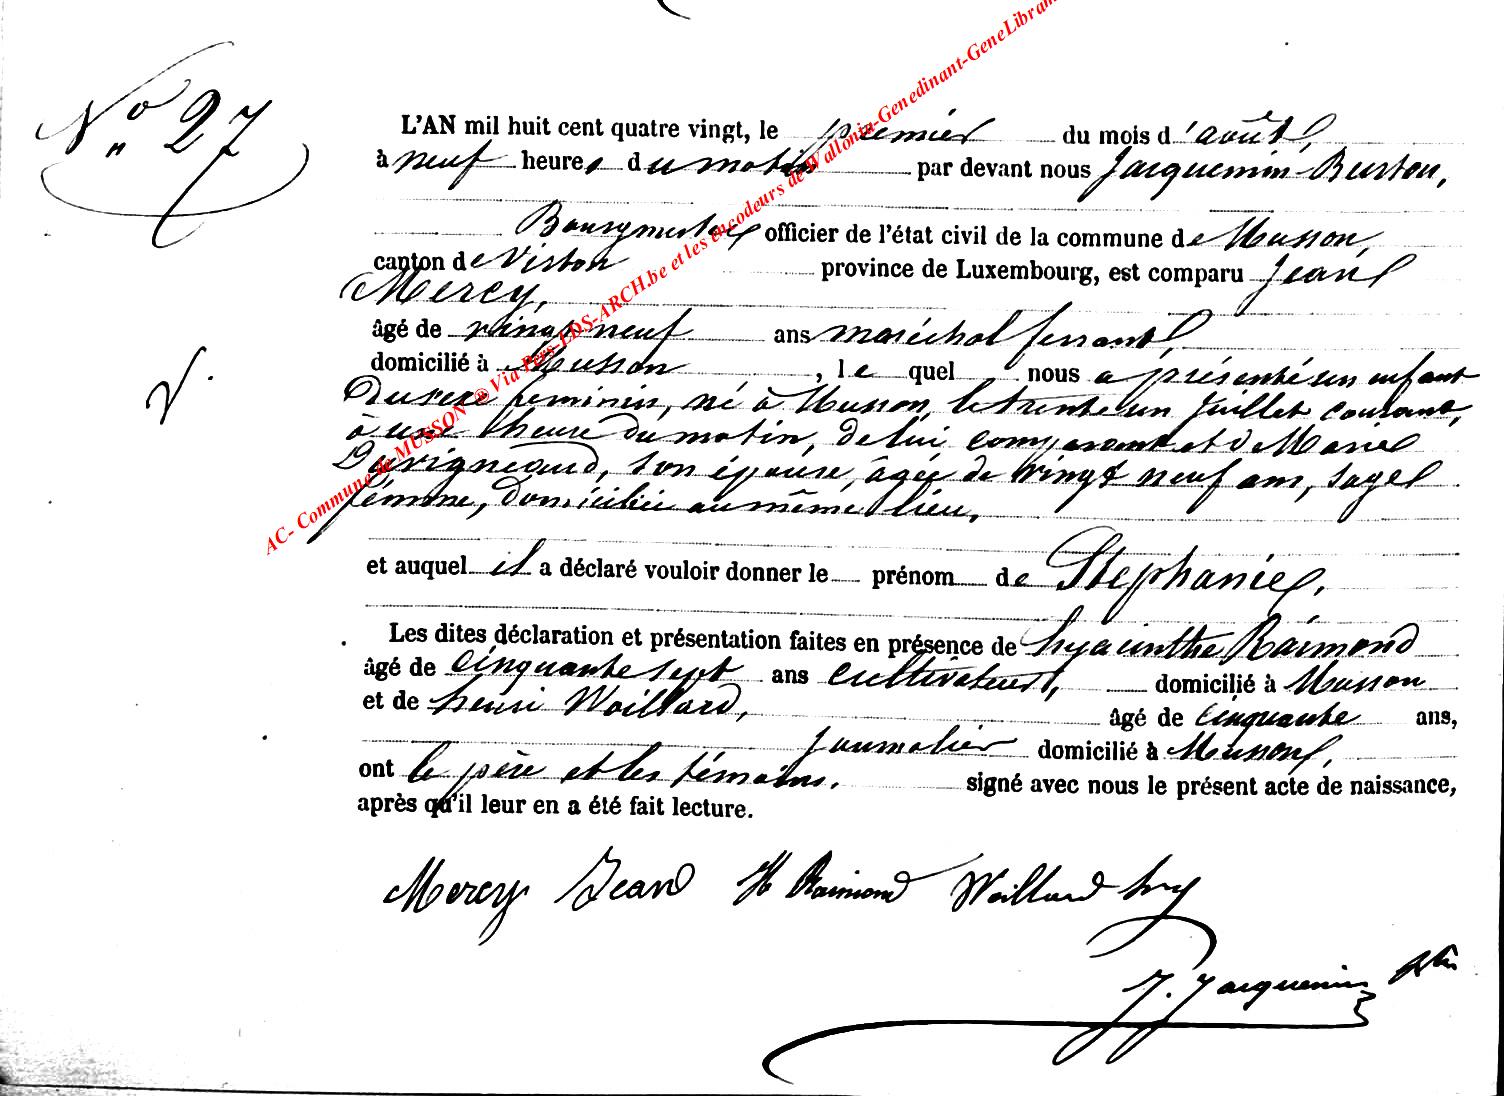 N° 27
L'AN mil huit cent quatre vingt, le premier du mois d'août,
à neuf heures du matin par devant nous Jacquemin-Burton,
Bourgmestre officier de l'état civil de la commune de Musson,
canton de Virton province de Luxembourg, est comparu Jean
Mercy,
âgé de vingt neuf ans maréchal ferrant,
domicilié à Musson, le quel nous a présenté un enfant
Du sexe feminin, né à Musson, le trente un Juillet courant,
à une heure du matin, de lui comparant et de Marie
Davigneaud, son épouse, âgée de vingt neuf ans, sage
femme, domiciliée au même lieu,
et auquel il a déclaré vouloir donner le prénom de Stephanie,
Les dites déclaration et présentation faites en présence de hyacinthe Raimond
âgé de cinquante sept ans cultivateur, domicilié à Musson
et de henri Woillard, âgé de cinquante ans,
journalier domicilié à Musson,
ont le père et les témoins. signé avec nous le présent acte de naissance,
après qu'il leur en a été fait lecture.
Mercy Jean H Raimond Woillard hry
J. Jacquemin
AC- Commune de MUSSON ® Via Pers-LDS-ARCH.be et les encodeurs de Wallonia-Genedinant-GeneLibram